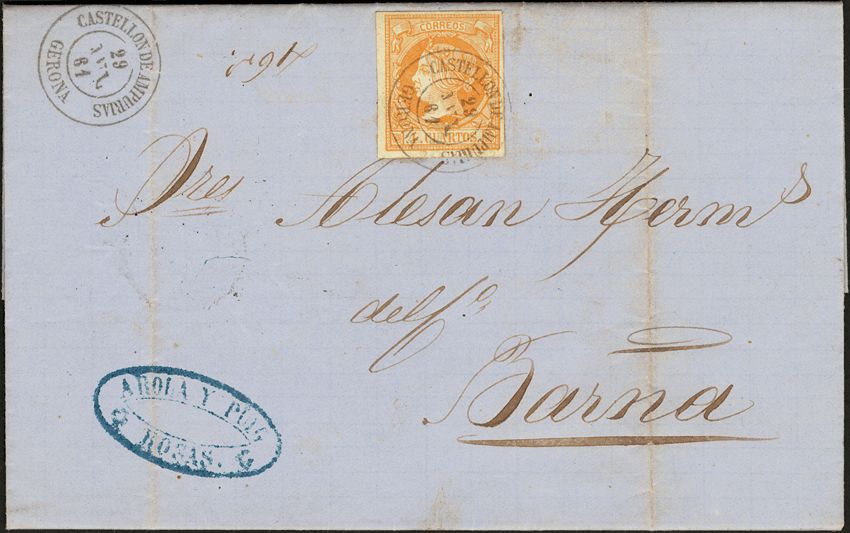 CASTELLON DE AMPURIAS
29
JUL
61
GERONA
CORREOS
4 CUARTOS
CASTELLON DE AMPURIAS
29
JUL
61
GERONA
Sres Alesan Herms
del Co
Barña
AROLA Y PUIG
ROSAS.